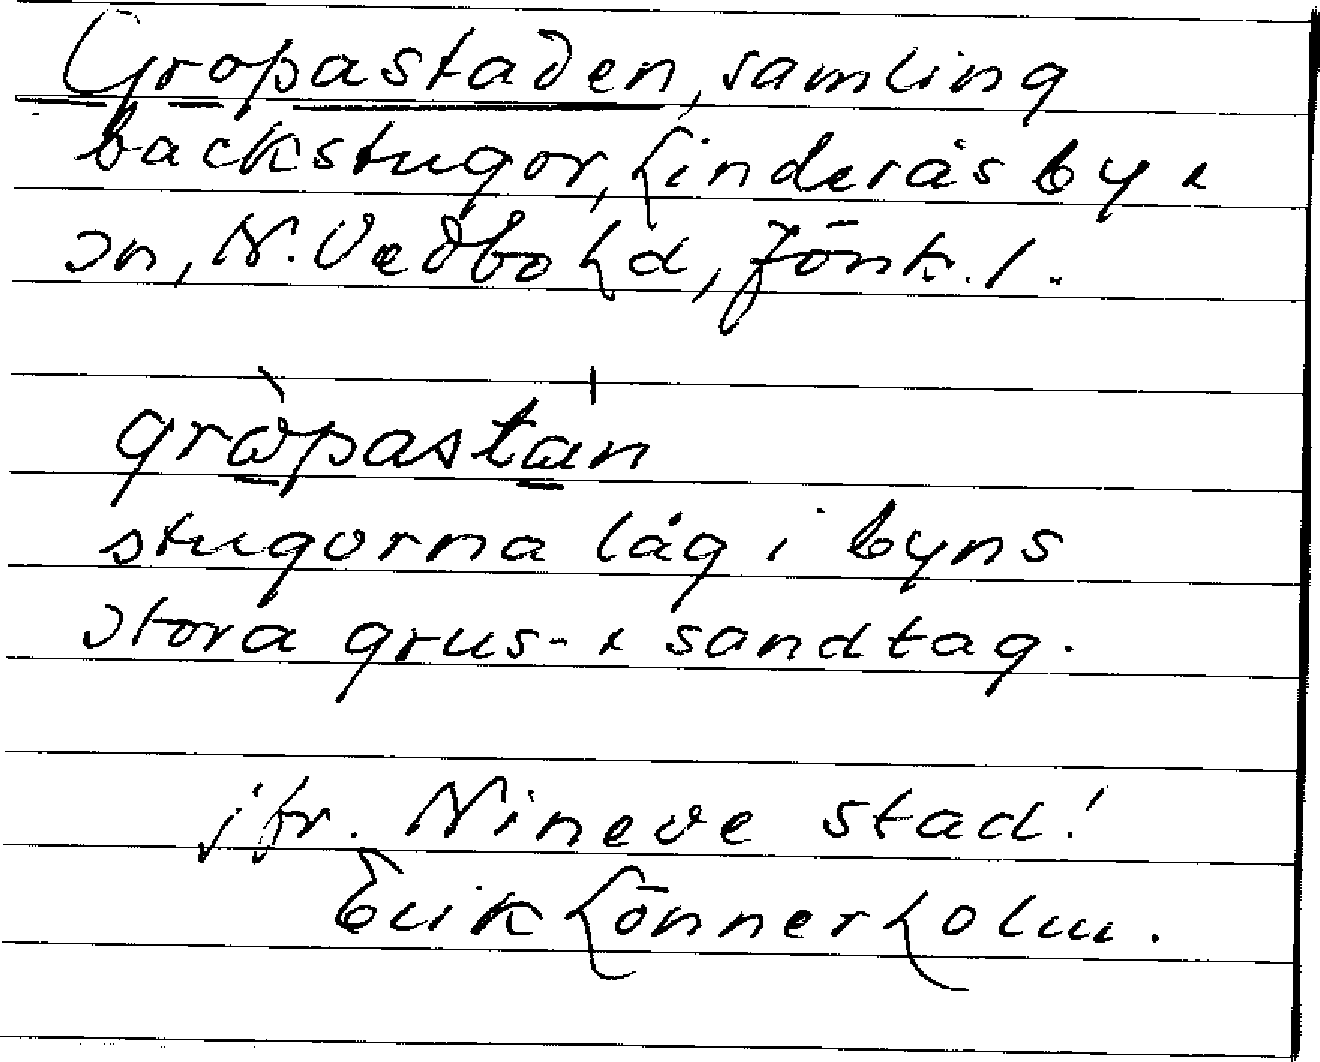 Gropastaden, samling
backstugor, Linderås by &
sn, N. Vedbo hd, Jönk. l.
gròpastan
stugorna låg i byns
stora grus- & sandtag.
jfr. Nineve stad!
Erik Lönnerholm.